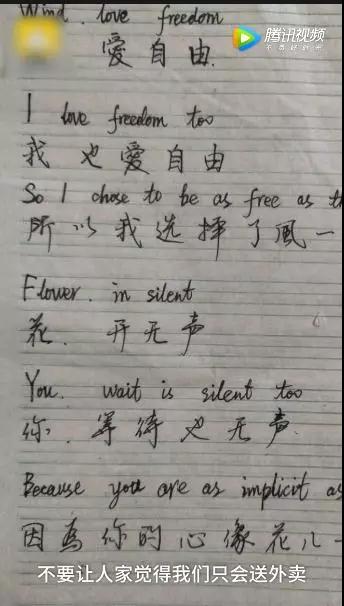 Wind. love freedom
腾讯视频
不负好时光
愛自由.
I love freedom too
我也愛自由
So I chose to be as free as
所以我选择了風一
Flower. in silent
花. 开无声
You. wait is silent too
你. 等待也无声.
Because you are as implicit as
因爲你的心像花儿一
不要让人家觉得我们只会送外卖